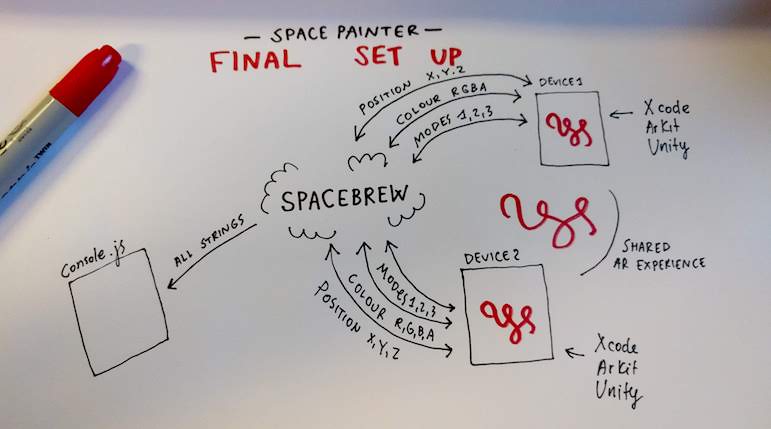 — SPACE PAINTER —
FINAL SET UP
POSITION X,Y.Z
COLOUR RGBA
MODES 1,2,3
DEVICE 1
Xcode
ArKit
Unity
SPACEBREW
ALL STRINGS
Console.js
SHARED
AR EXPERIENCE
DEVICE 2
MODES 1,2,3
COLOUR R,G,B,A
POSITION X,Y,Z
Xcode
ArKit
Unity
TWIN